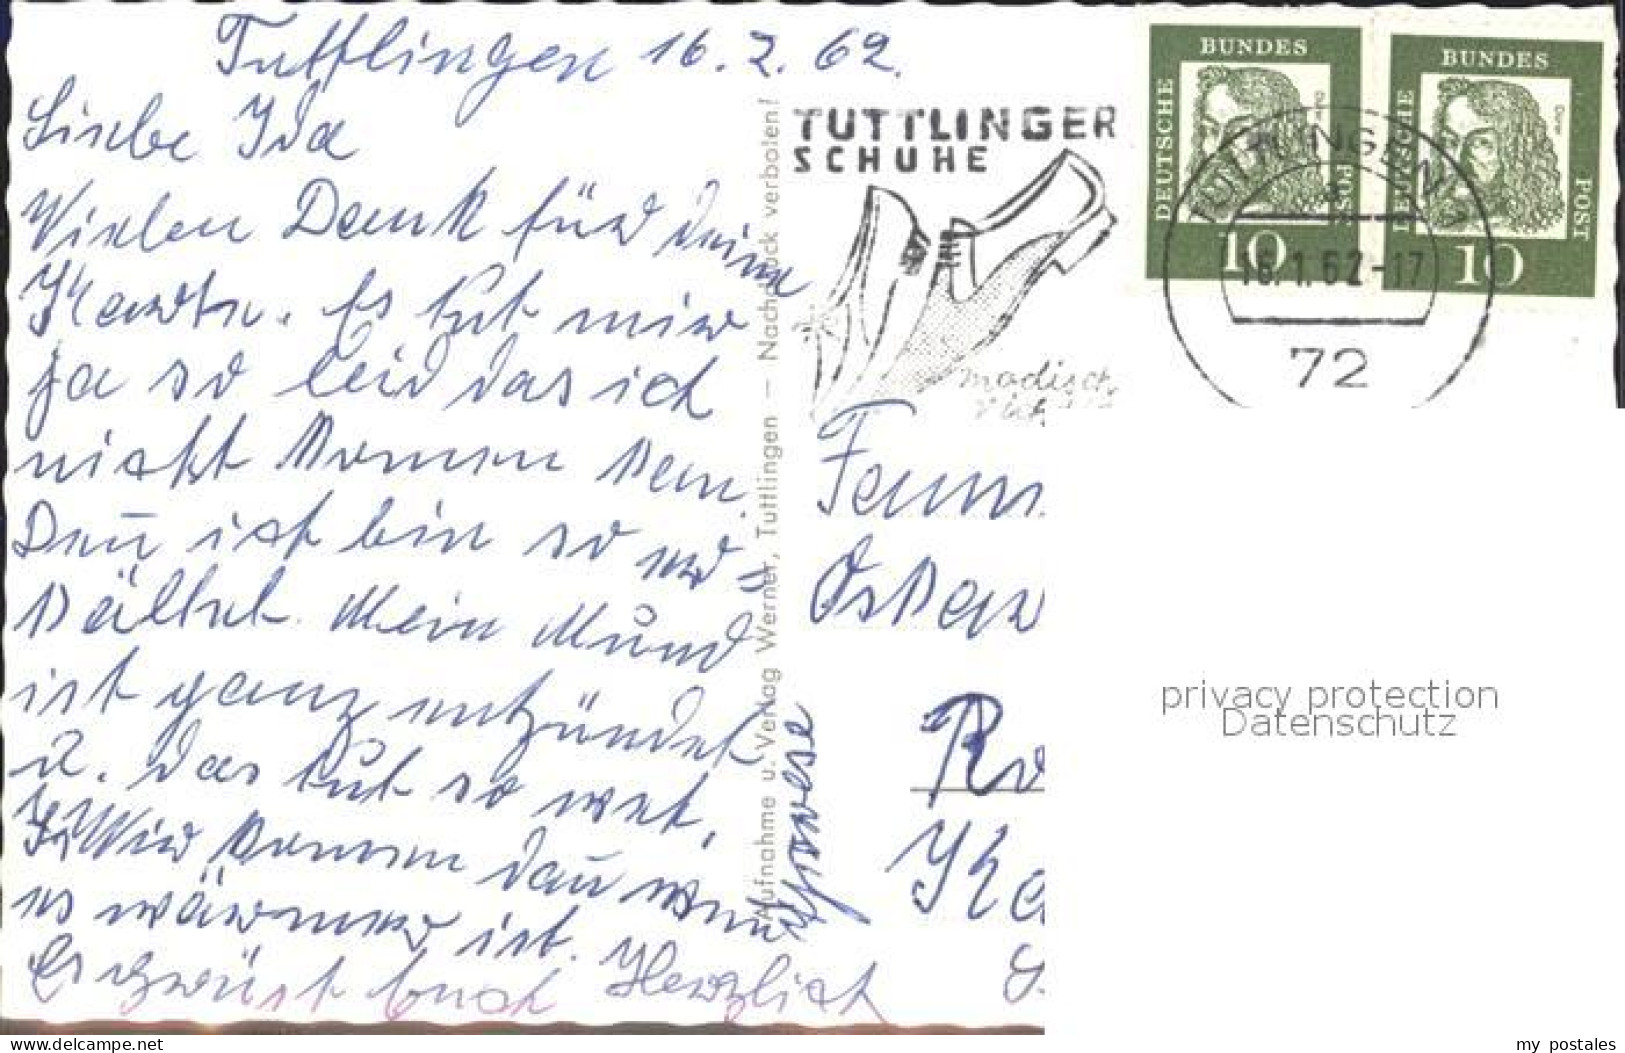 Tuttlingen 16. 2. 62.
Liebe Ida
Vielen Dank für deine
Karte. Es tut mir
ja so leid das ich
nicht kommen kan.
Den ich bin so er=
kältet. Mein Mund
ist ganz entzündet
u. das tut so weh,
Wir kommen dan wenn
es wärmer ist.
Es grüßt Euch Herzlich
Aufnahme u. Verlag Werner, Tuttlingen — Nachdruck verboten!
TUTTLINGER
SCHUHE
modisch
DEUTSCHE
BUNDES
POST
10
DEUTSCHE
BUNDES
POST
10
TUTTLINGEN
16.1.62-17
72
privacy protection
Datenschutz
delcampe.net
my_postales